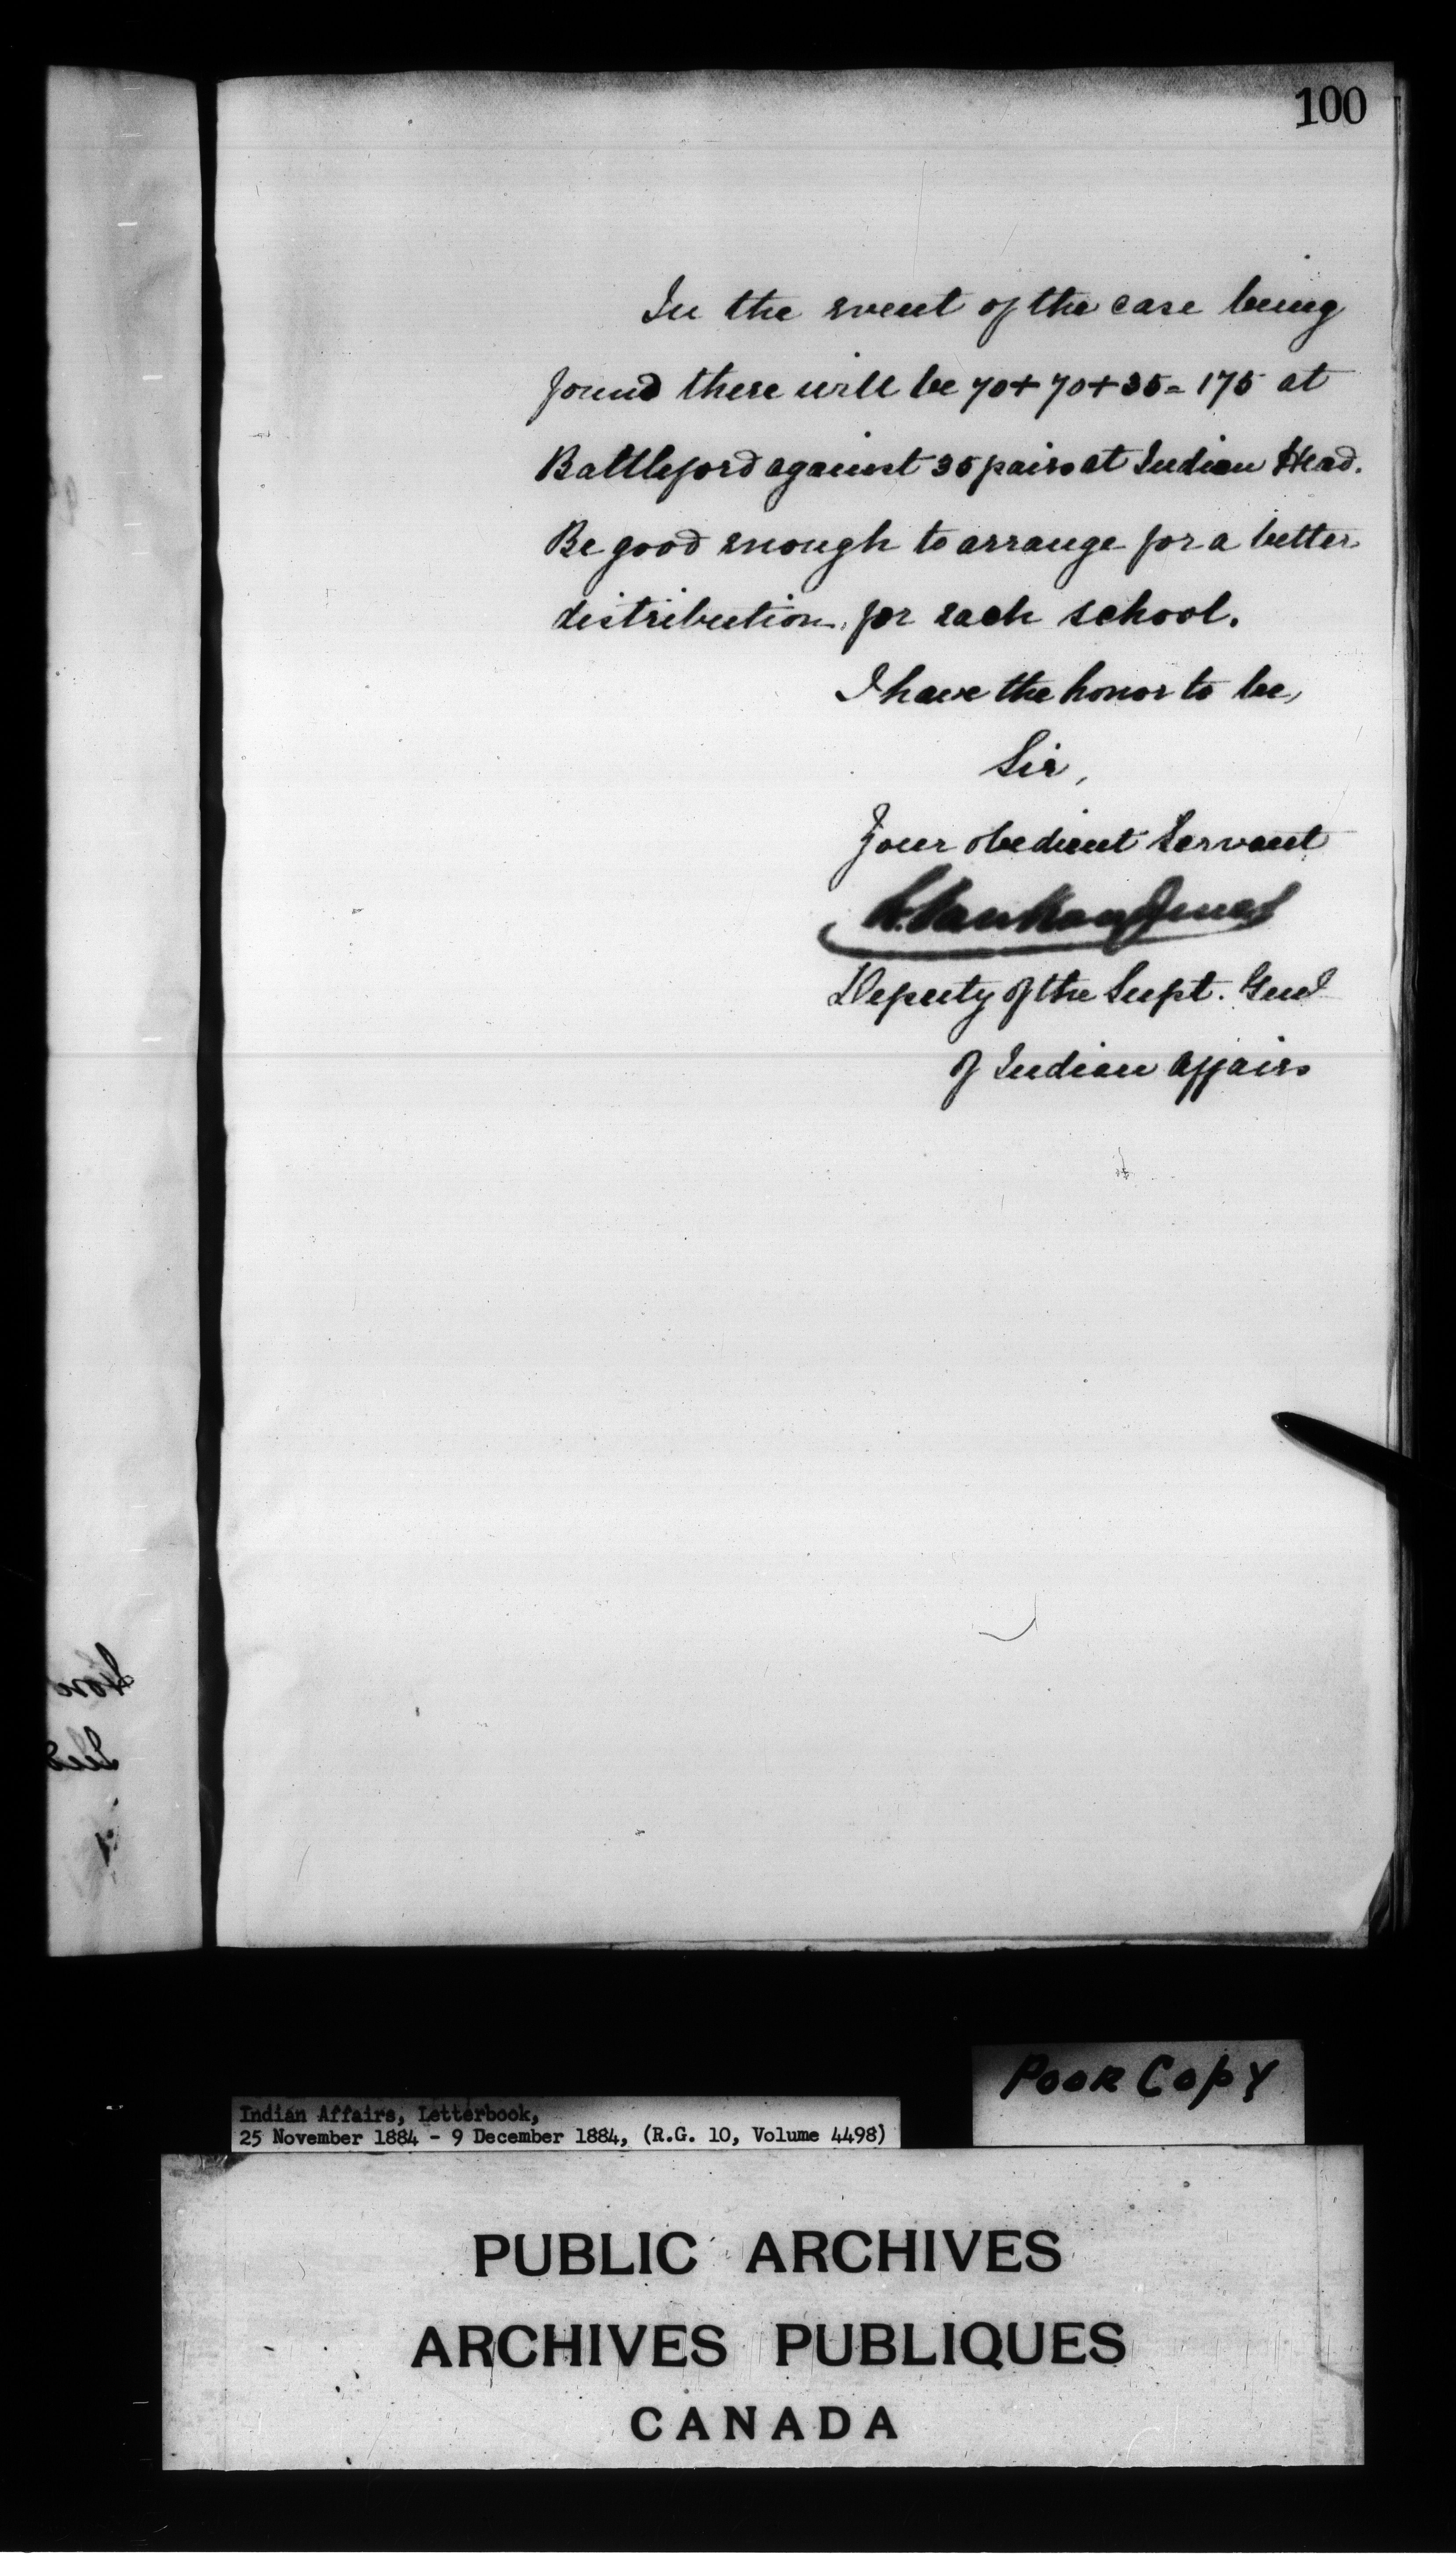 100
In the event of the case being
found there will be 70+70+35=175 at
Battleford against 35 pairs at Indian Head.
Be good enough to arrange for a better
distribution, for each school.
I have the honor to be,
Sir,
Your obedient Servant
L. VanKoughnet
Deputy of the Supt. Genl
of Indian Affairs
Poor Copy
Indian Affairs, Letterbook,
25 November 1884 - 9 December 1884, (R.G. 10, Volume 4498)
PUBLIC ARCHIVES
ARCHIVES PUBLIQUES
CANADA